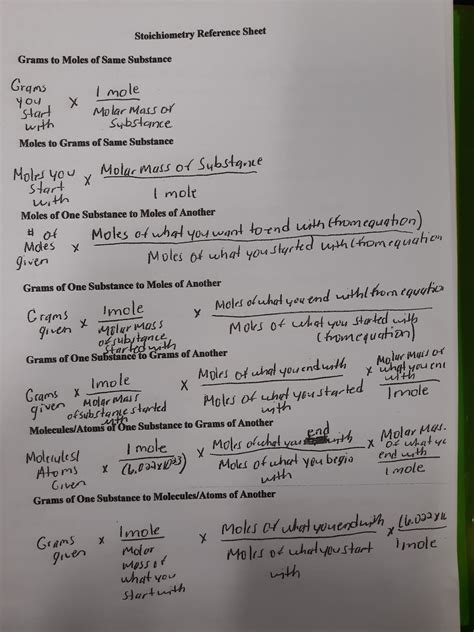 Stoichiometry Reference Sheet
Grams to Moles of Same Substance
Grams you start with × 1 mole / Molar Mass of Substance
Moles to Grams of Same Substance
Moles you start with × Molar Mass of Substance / 1 mole
Moles of One Substance to Moles of Another
# of Moles given × Moles of what you want to end with (from equation) / Moles of what you started with (from equation
Grams of One Substance to Moles of Another
Grams given × 1 mole / Molar Mass of substance started with × Moles of what you end with (from equation / Moles of what you started with (from equation)
Grams of One Substance to Grams of Another
Grams given × 1 mole / Molar Mass of substance started with × Moles of what you end with / Moles of what you started with × Molar Mass of what you end with / 1 mole
Molecules/Atoms of One Substance to Grams of Another
Molecules/ Atoms Given × 1 mole / (6.022×10^23) × Moles of what you end with / Moles of what you begin with × Molar Mass. of what yo end with / 1 mole
Grams of One Substance to Molecules/Atoms of Another
Grams given × 1 mole / Molar Mass of what you start with × Moles of what you end with / Moles of what you start with × (6.022×1 / 1 mole